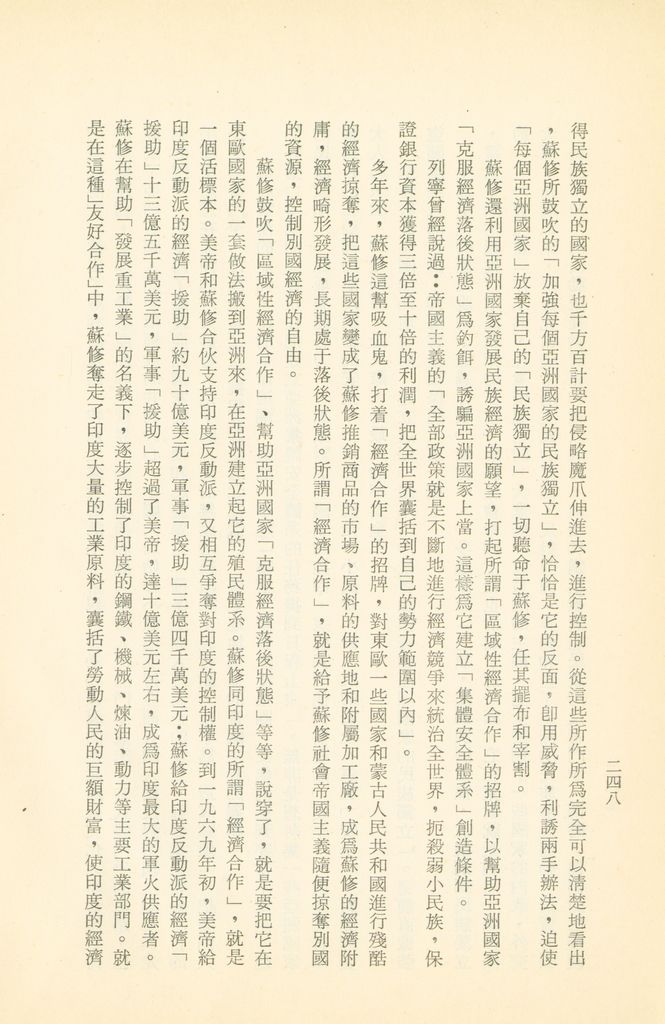 得民族獨立的國家，也千方百計要把侵略魔爪伸進去，進行控制。從這些所作所爲完全可以清楚地看出
，蘇修所鼓吹的「加強每個亞洲國家的民族獨立」，恰恰是它的反面，卽用威脅，利誘兩手辦法，迫使
「每個亞洲國家」放棄自己的「民族獨立」，一切聽命于蘇修，任其擺布和宰割。
蘇修還利用亞洲國家發展民族經濟的願望，打起所謂「區域性經濟合作」的招牌，以幫助亞洲國家
「克服經濟落後狀態」爲釣餌，誘騙亞洲國家上當。這樣爲它建立「集體安全體系」創造條件。
列寧曾經說過：帝國主義的「全部政策就是不斷地進行經濟競爭來統治全世界，扼殺弱小民族，保
證銀行資本獲得三倍至十倍的利潤，把全世界囊括到自己的勢力範圍以內」。
多年來，蘇修這幫吸血鬼，打着「經濟合作」的招牌，對東歐一些國家和蒙古人民共和國進行殘酷
的經濟掠奪，把這些國家變成了蘇修推銷商品的市場、原料的供應地和附屬加工廠，成爲蘇修的經濟附
庸，經濟畸形發展，長期處于落後狀態。所謂「經濟合作」，就是給予蘇修社會帝國主義隨便掠奪別國
的資源，控制別國經濟的自由。
蘇修鼓吹「區域性經濟合作」、幫助亞洲國家「克服經濟落後狀態」等等，說穿了，就是要把它在
東歐國家的一套做法搬到亞洲來，在亞洲建立起它的殖民體系。蘇修同印度的所謂「經濟合作」，就是
一個活標本。美帝和蘇修合伙支持印度反動派，又相互爭奪對印度的控制權。到一九六九年初，美帝給
印度反動派的經濟「援助」約九十億美元，軍事「援助」三億四千萬美元；蘇修給印度反動派的經濟「
援助」十三億五千萬美元，軍事「援助」超過了美帝，達十億美元左右，成爲印度最大的軍火供應者。
蘇修在幫助「發展重工業」的名義下，逐步控制了印度的鋼鐵、機械、煉油、動力等主要工業部門。就
是在這種「友好合作」中，蘇修奪走了印度大量的工業原料，囊括了勞動人民的巨額財富，使印度的經濟
二四八